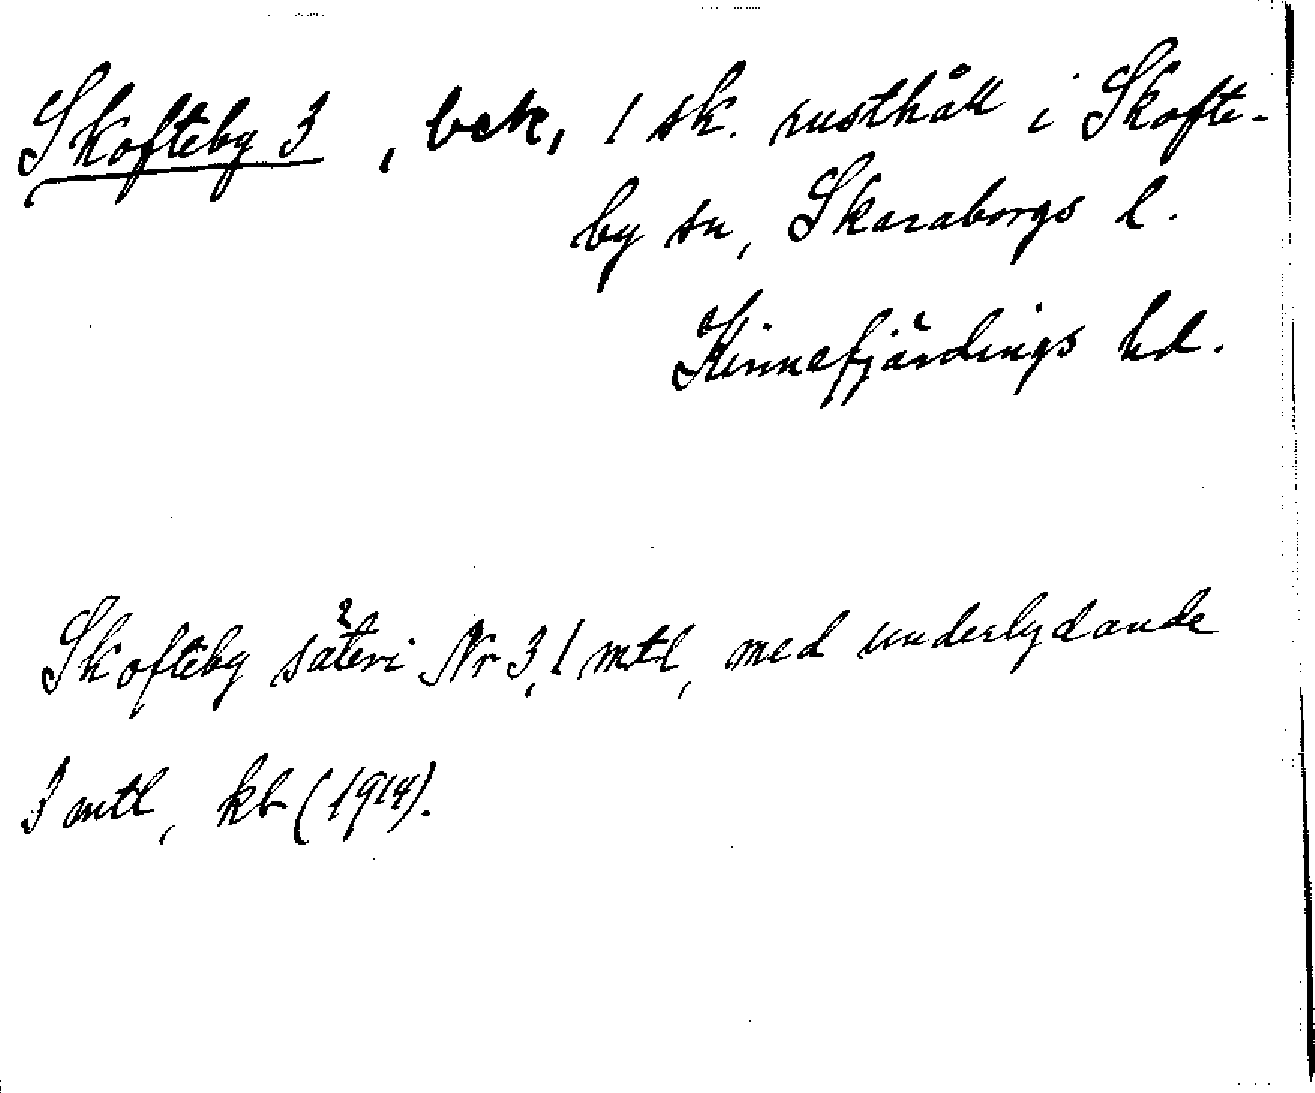 Skofteby 3, bek, 1 sk. rusthåll i Skofte-
by sn, Skaraborgs l.
Kinnefjärdings hd.
Skofteby säteri Nr 3, 1 mtl, med underlydande
3 mtl, kb (1914).